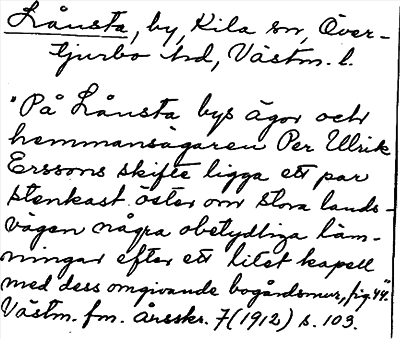 Lånsta, by, Kila sn, Över-
tjurbo hd, Västm. l.
"På Lånsta bys ägor och
hemmansägaren Per Ulrik
Erssons skifte ligga ett par
stenkast öster om stora lands-
vägen några obetydliga läm-
ningar efter ett litet kapell
med dess omgivande bogårdsmur, fig. 44."
Västm. fm. årsskr. 7 (1912) s. 103.